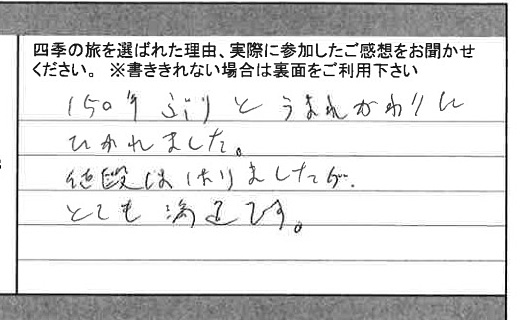 四季の旅を選ばれた理由、実際に参加したご感想をお聞かせ
ください。 ※書ききれない場合は裏面をご利用下さい
150年ぶりとうまれかわりに
ひかれました。
値段ははりましたが、
とても満足です。